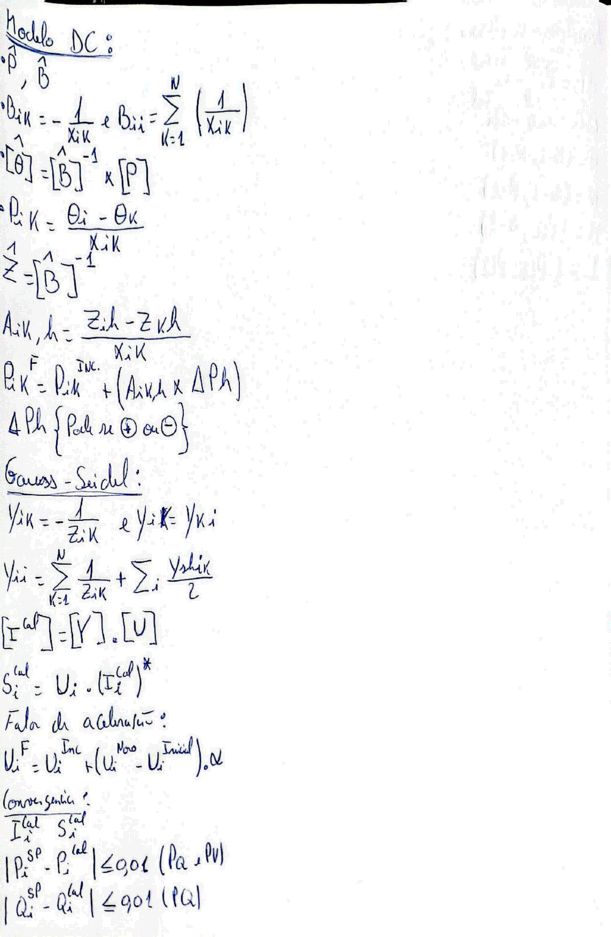 Modelo DC:
• P̂, B̂
• Bik = - 1/xik e Bii = Σ(K=1..N) (1/xik)
• [θ̂] = [B̂]⁻¹ x [P]
• Pik = (θi - θk)/xik
Ẑ = [B̂]⁻¹
Aik,h = (Zih - Zkh)/xik
Pik^F = Pik^Inc. + (Aik,h x ΔPh)
ΔPh {Pode se ⊕ ou ⊖}
Gauss-Seidel:
Yik = - 1/Zik e Yik = Yki
Yii = Σ(K=1..N) 1/Zik + Σi Yshik/2
[I^Cal] = [Y].[U]
Si^Cal = Ui.(Ii^Cal)*
Fator de aceleração:
Ui^F = Ui^Inc + (Ui^Novo - Ui^Inicial).α
Convergência:
Ii^Cal Si^Cal
|Pi^SP - Pi^Cal| ≤ 0,01 (PQ e PV)
|Qi^SP - Qi^Cal| ≤ 0,01 (PQ)